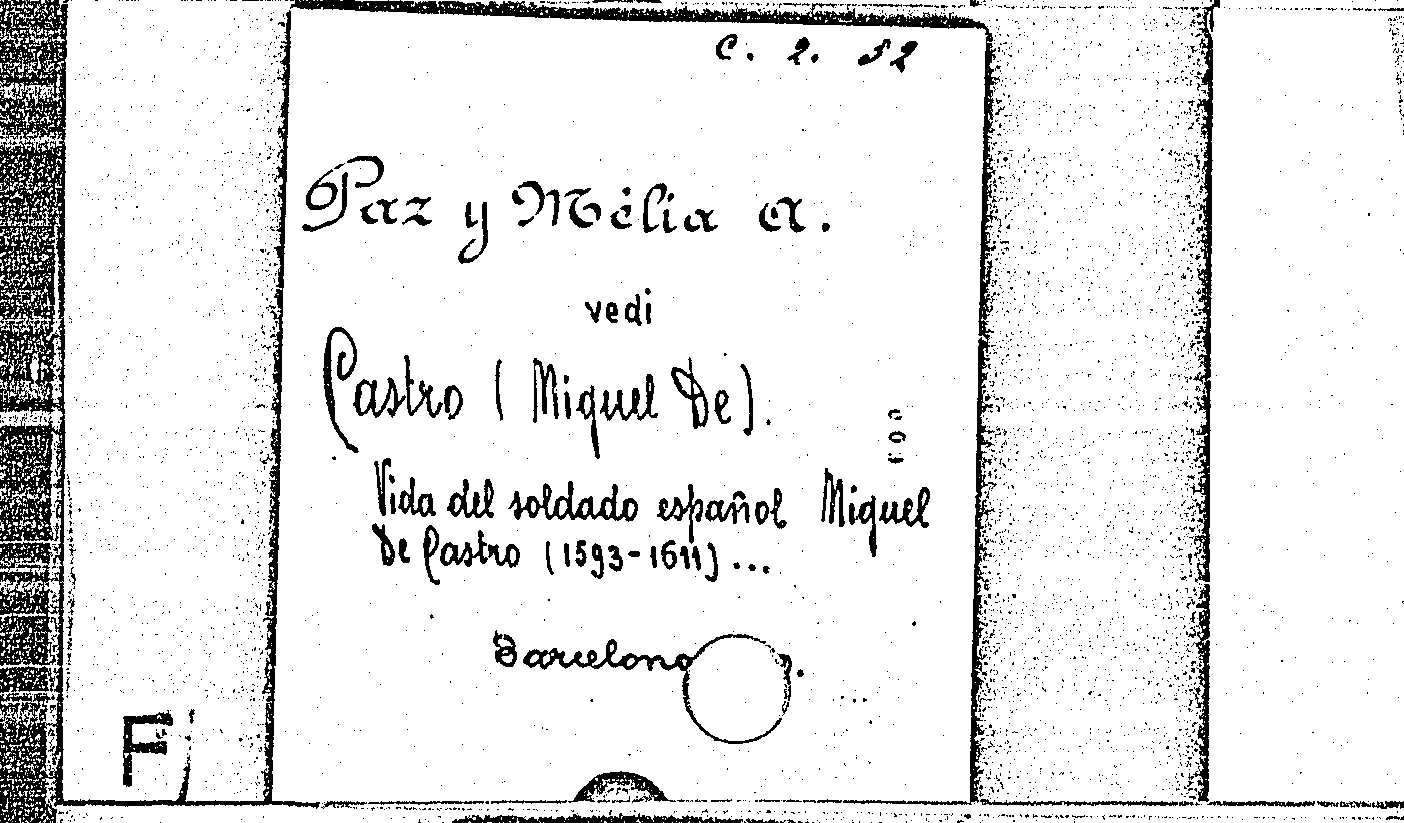 C. 2. 52
Paz y Mélia A.
vedi
Castro (Miguel De).
Vida del soldado español Miguel
De Castro (1593-1611)...
Barcelona
F